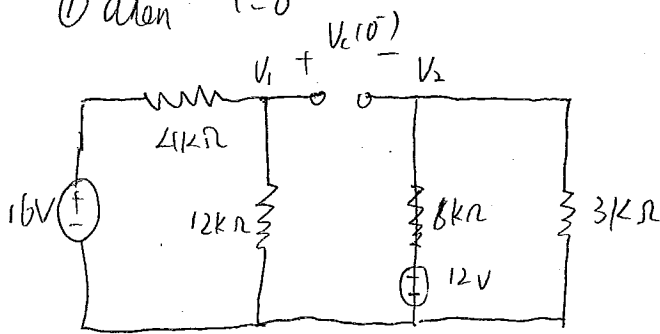 ① When t=0⁻
Vc(0⁻)
V₁ + − V₂
4kΩ
16V + −
12kΩ
6kΩ
3kΩ
+ − 12V